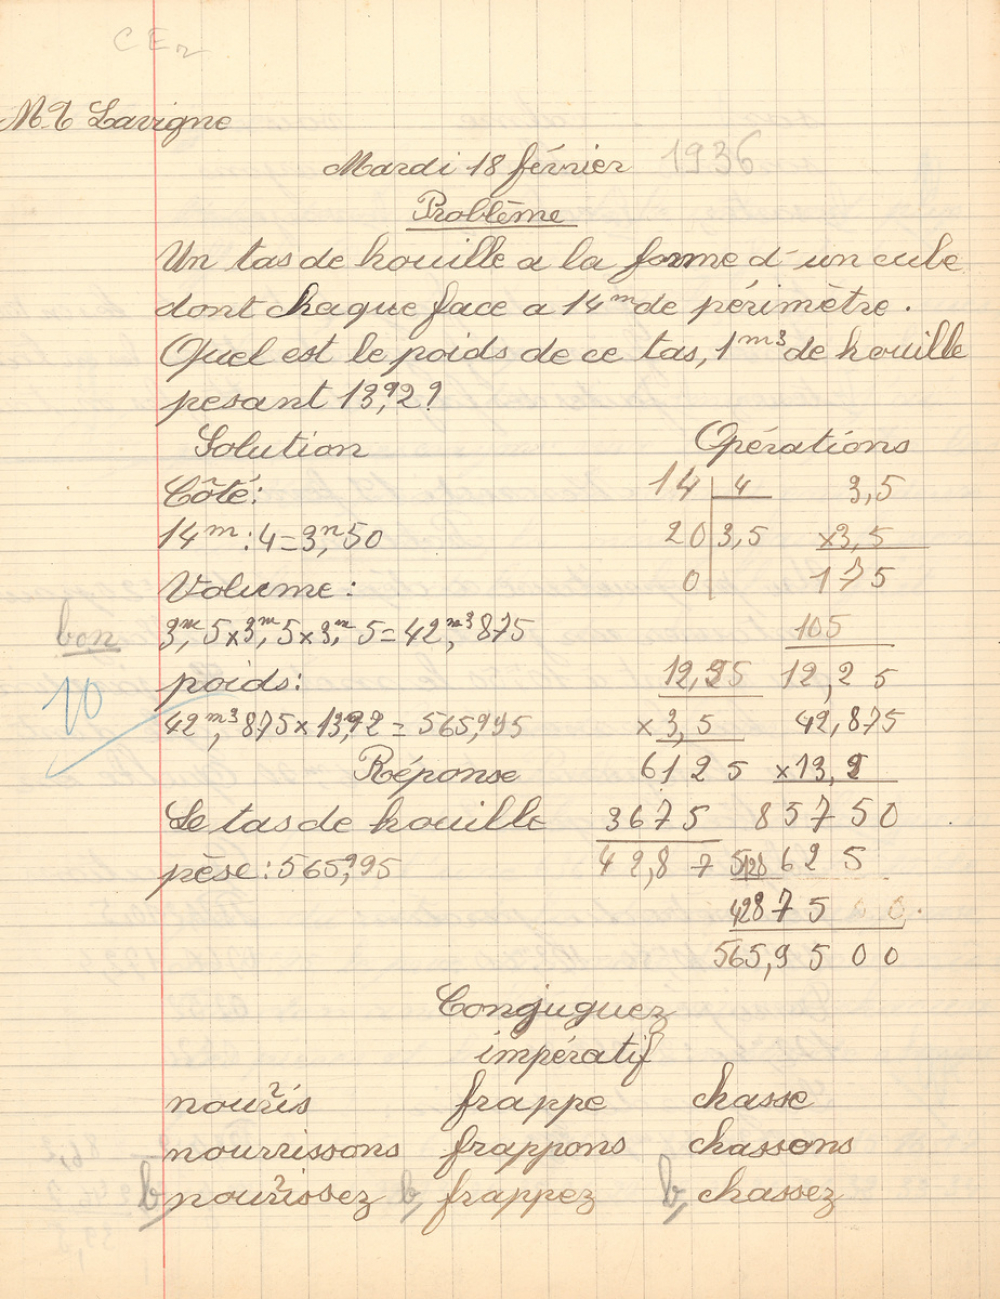 CE2
M.T Lavigne
Mardi 18 février 1936
Problème
Un tas de houille a la forme d'un cube
dont chaque face a 14 m de périmètre.
Quel est le poids de ce tas, 1 m3 de houille
pesant 13,q2?
Solution Opérations
Côté:
14 m : 4 = 3,m50
Volume:
3,m5 x 3,m5 x 3,m5 = 42,m3875
bon
10
poids:
42,m3875 x 13,q2 = 565,q95
Réponse
Le tas de houille
pèse : 565,q95
14 4
20 3,5
0
3,5
x3,5
175
105
12,25
12,25
x 3,5
6125
3675
42,875
42,875
x13,2
85750
128625
42875 00
565,9500
Conjuguez
impératif
nourris frappe chasse
nourrissons frappons chassons
b, nourissez b, frappez b, chassez